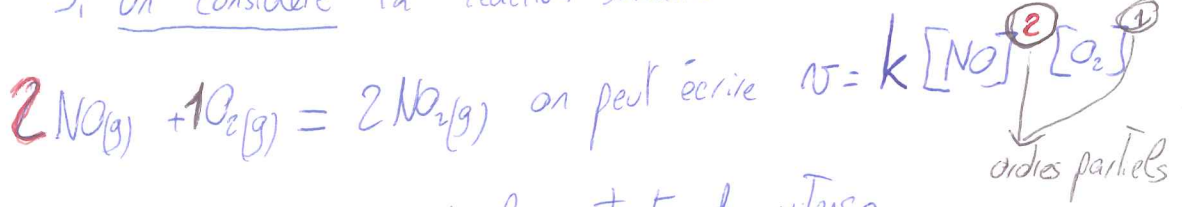 On considère la réaction
2 NO(g) + 1 O₂(g) = 2 NO₂(g) on peut écrire v = k [NO]² [O₂]¹
ordres partiels